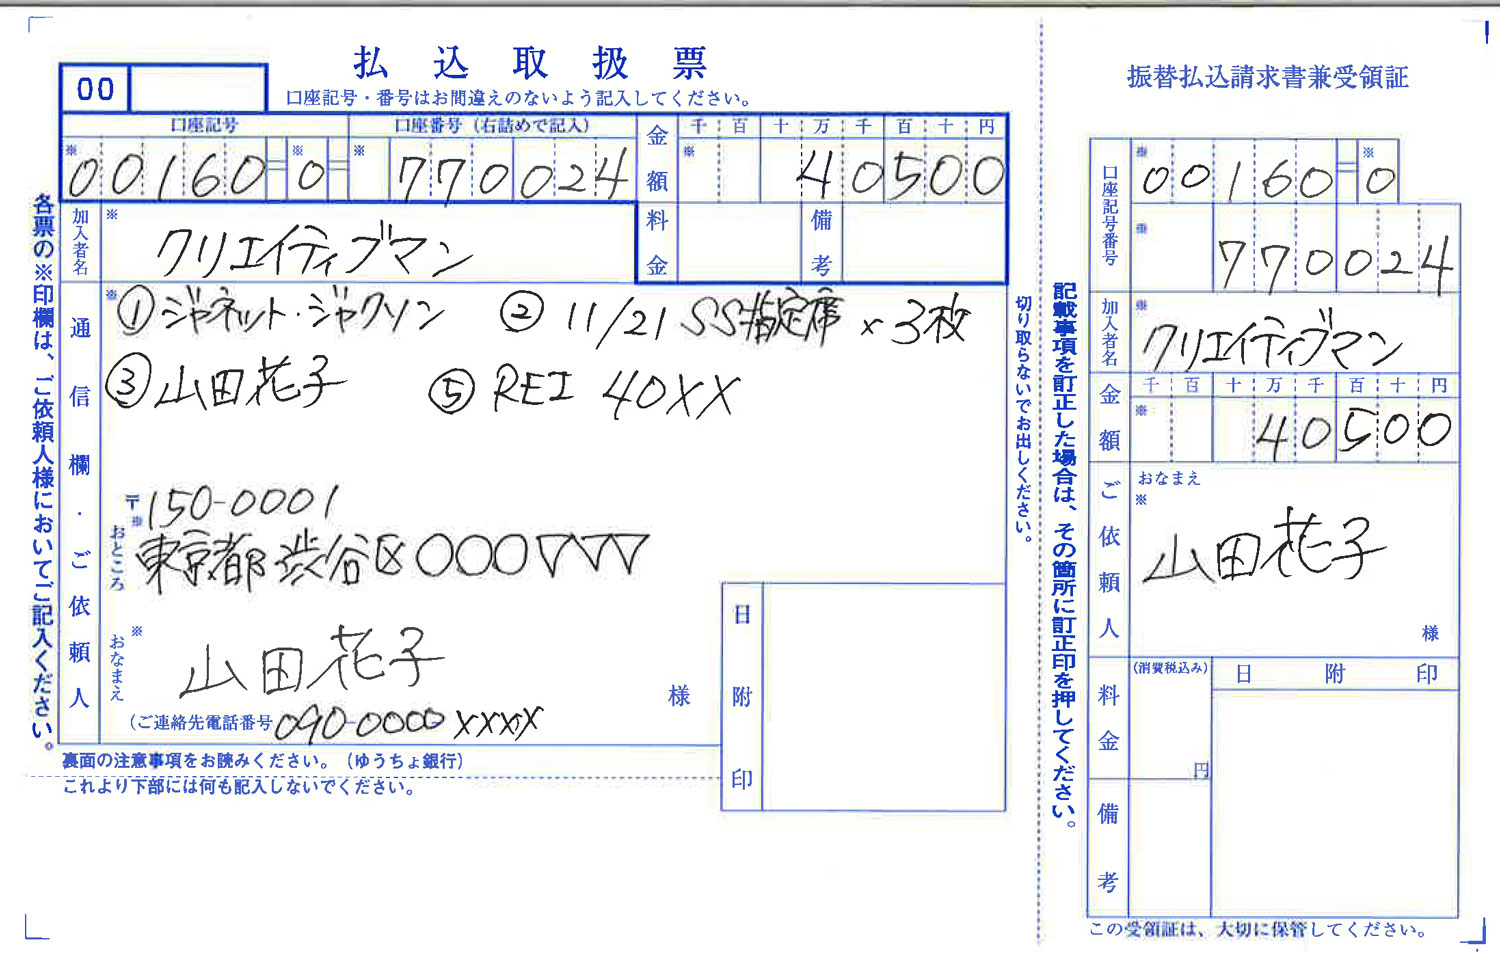 払込取扱票
00
口座記号・番号はお間違えのないよう記入してください。
口座記号
口座番号（右詰めで記入）
金額
千 百 十 万 千 百 十 円
※ 00160 = ※ 0 = ※ 770024
※ 40500
加入者名
※ クリエイティブマン
料金
備考
通信欄・ご依頼人
※ ①ジャネット・ジャクソン ② 11/21 SS指定席 × 3枚
③山田花子 ⑤ REI 40XX
〒 150-0001
※
おところ
東京都渋谷区〇〇〇▽▽▽
おなまえ
※
山田花子
様
（ご連絡先電話番号 090-0000 XXXX
日附印
裏面の注意事項をお読みください。（ゆうちょ銀行）
これより下部には何も記入しないでください。
各票の※印欄は、ご依頼人様においてご記入ください。
切り取らないでお出しください。
記載事項を訂正した場合は、その箇所に訂正印を押してください。
振替払込請求書兼受領証
口座記号番号
※ 00160 = ※ 0
※ 770024
加入者名
※
クリエイティブマン
金額
千 百 十 万 千 百 十 円
※ 40500
ご依頼人
おなまえ
※
山田花子
様
料金
（消費税込み）
円
日 附 印
備考
この受領証は、大切に保管してください。